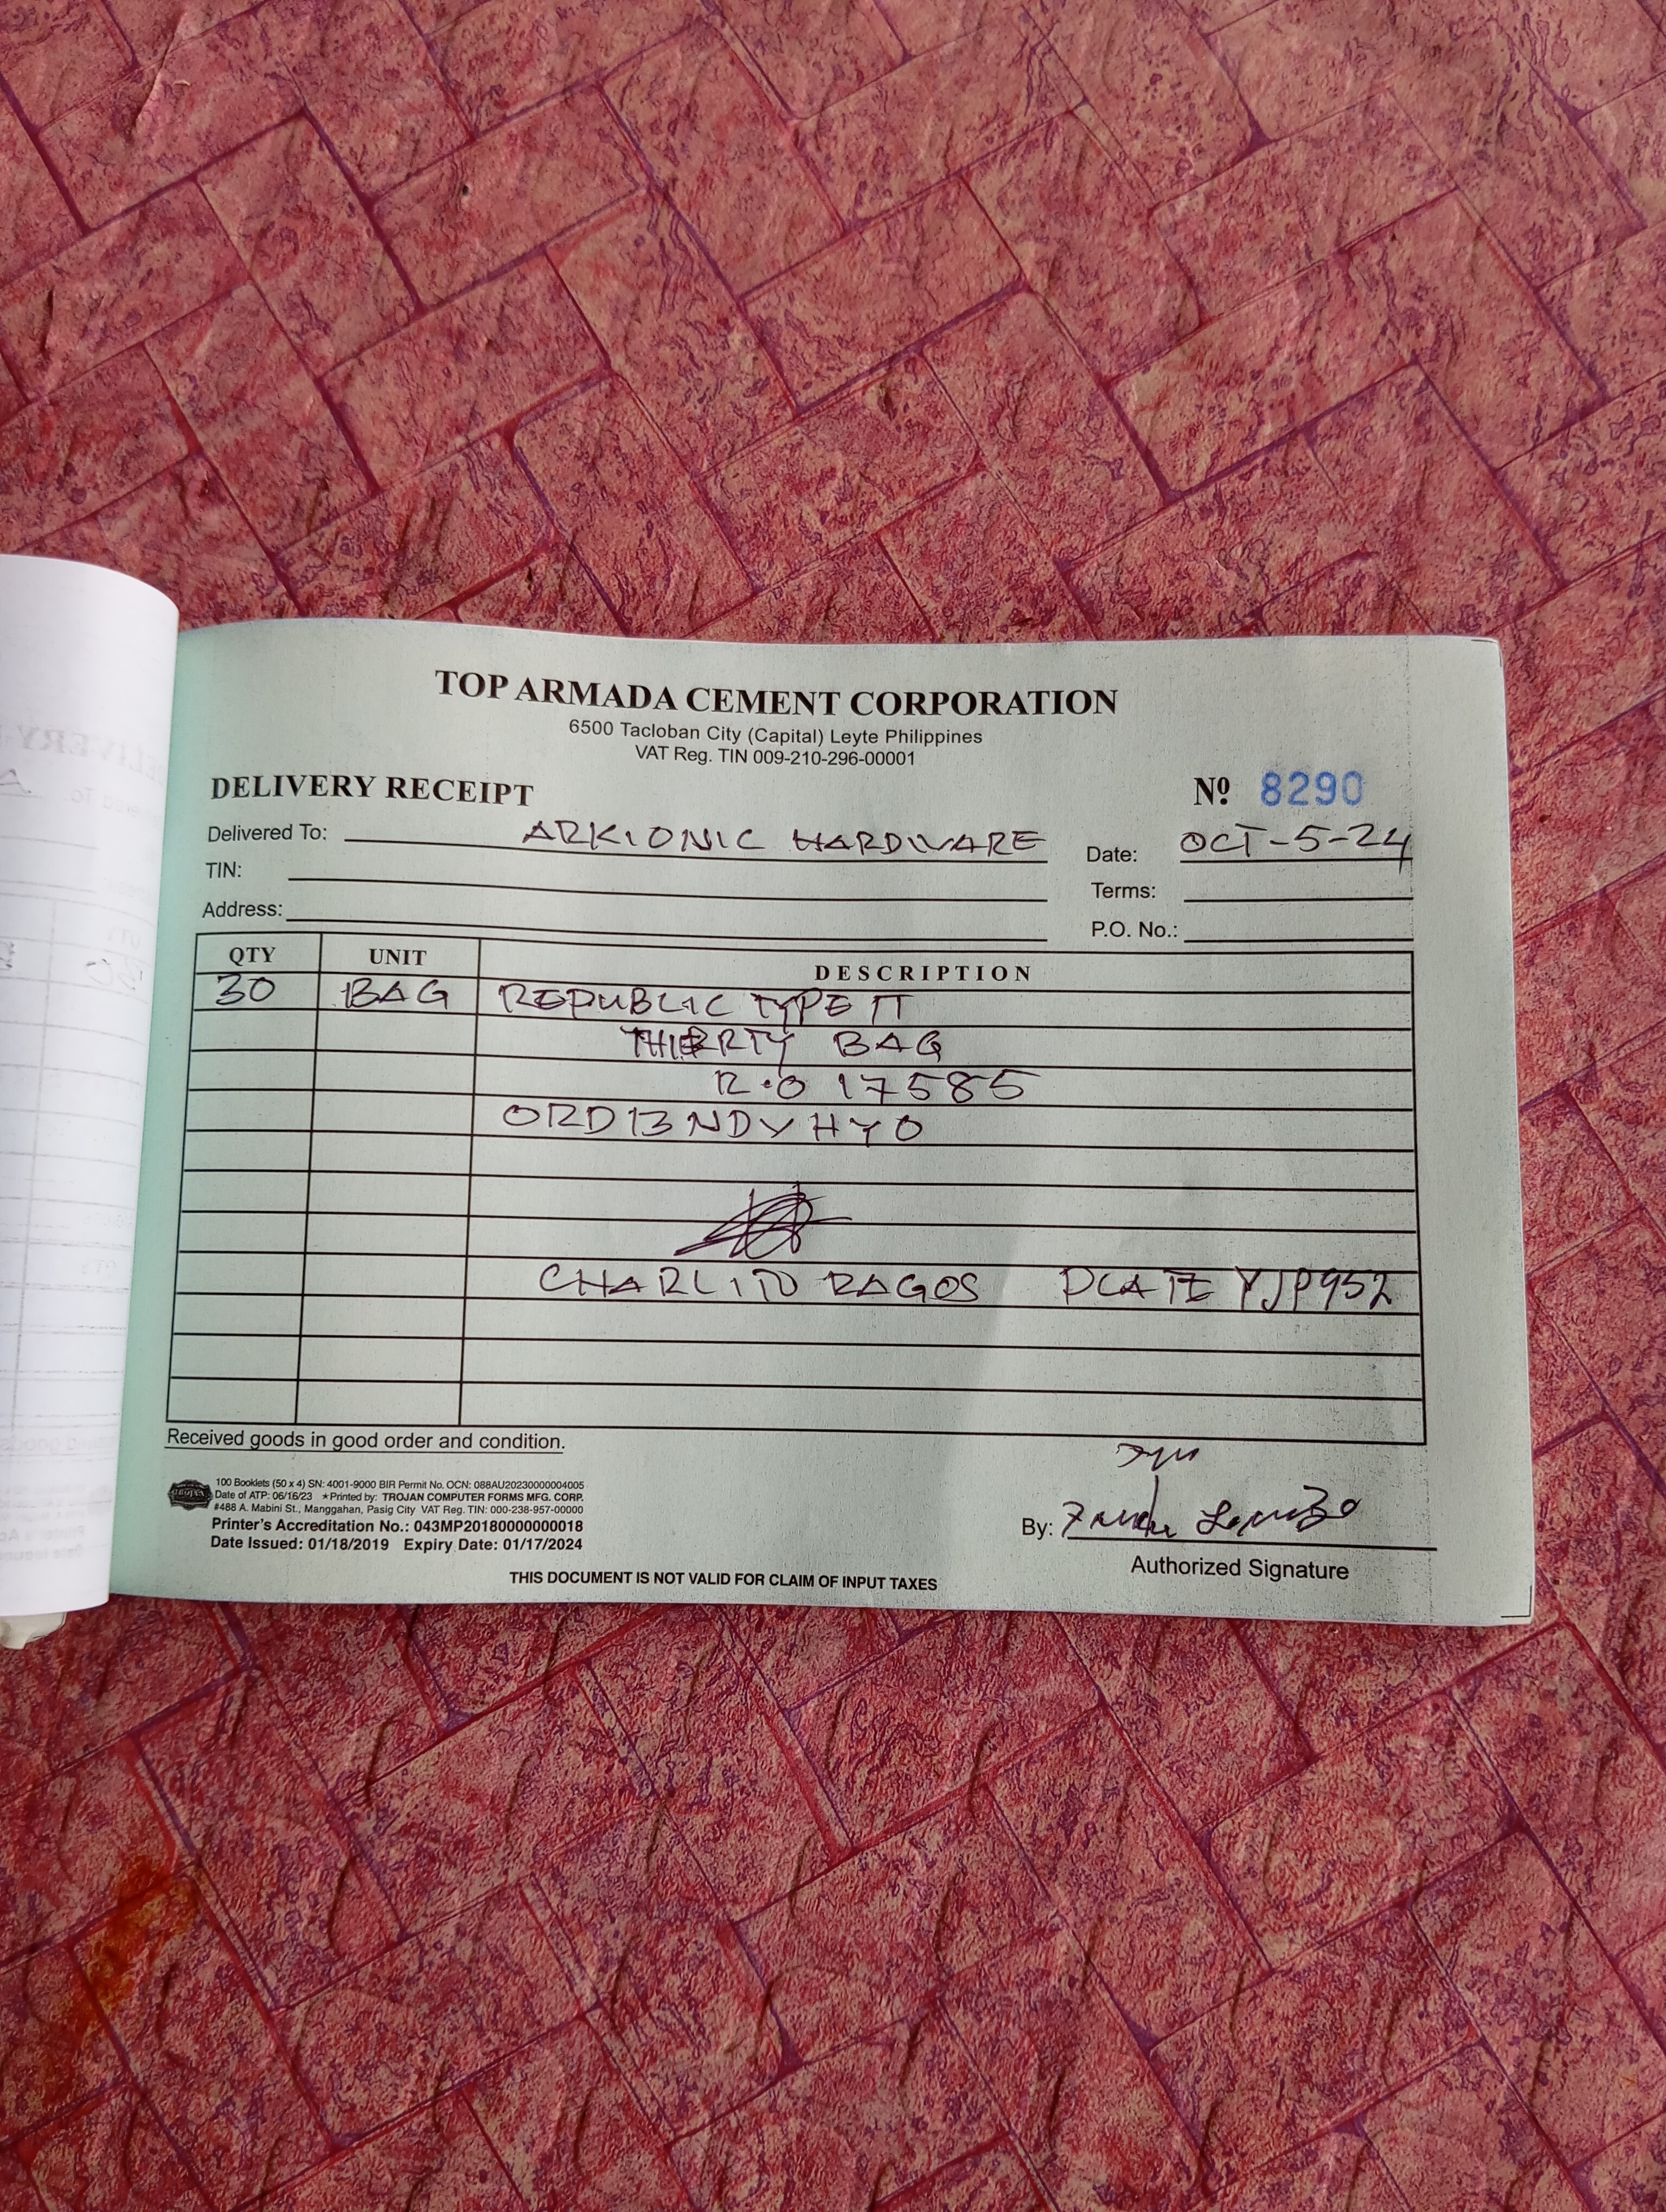 TOP ARMADA CEMENT CORPORATION
6500 Tacloban City (Capital) Leyte Philippines
VAT Reg. TIN 009-210-296-00001
DELIVERY RECEIPT
Nº 8290
Delivered To: ARKIONIC HARDWARE
Date: OCT-5-24
TIN:
Terms:
Address:
P.O. No.:
QTY UNIT DESCRIPTION
30 BAG REPUBLIC TYPE IT
THIERTY BAG
R.O 17585
ORD13NDVHYO
CHARLITO RAGOS PLATE YJP952
Received goods in good order and condition.
100 Booklets (50 x 4) SN: 4001-9000 BIR Permit No. OCN: 088AU20230000004005
Date of ATP: 06/16/23 ★Printed by: TROJAN COMPUTER FORMS MFG. CORP.
#488 A. Mabini St., Manggahan, Pasig City VAT Reg. TIN: 000-238-957-00000
Printer's Accreditation No.: 043MP20180000000018
Date Issued: 01/18/2019 Expiry Date: 01/17/2024
By:
Authorized Signature
THIS DOCUMENT IS NOT VALID FOR CLAIM OF INPUT TAXES